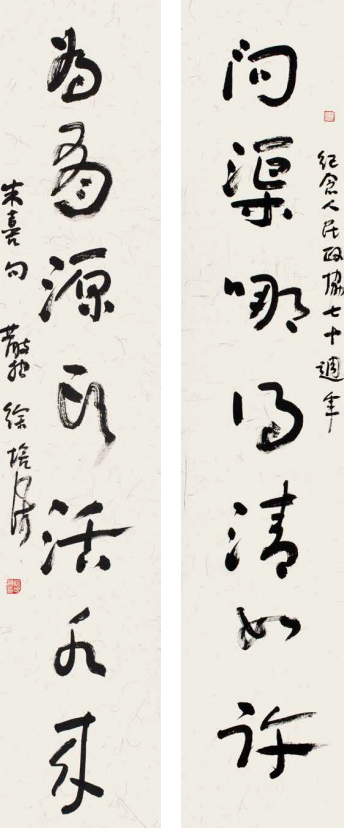 纪念人民政協七十週年
问渠哪得清如许
為有源头活水来
朱熹句 徐培